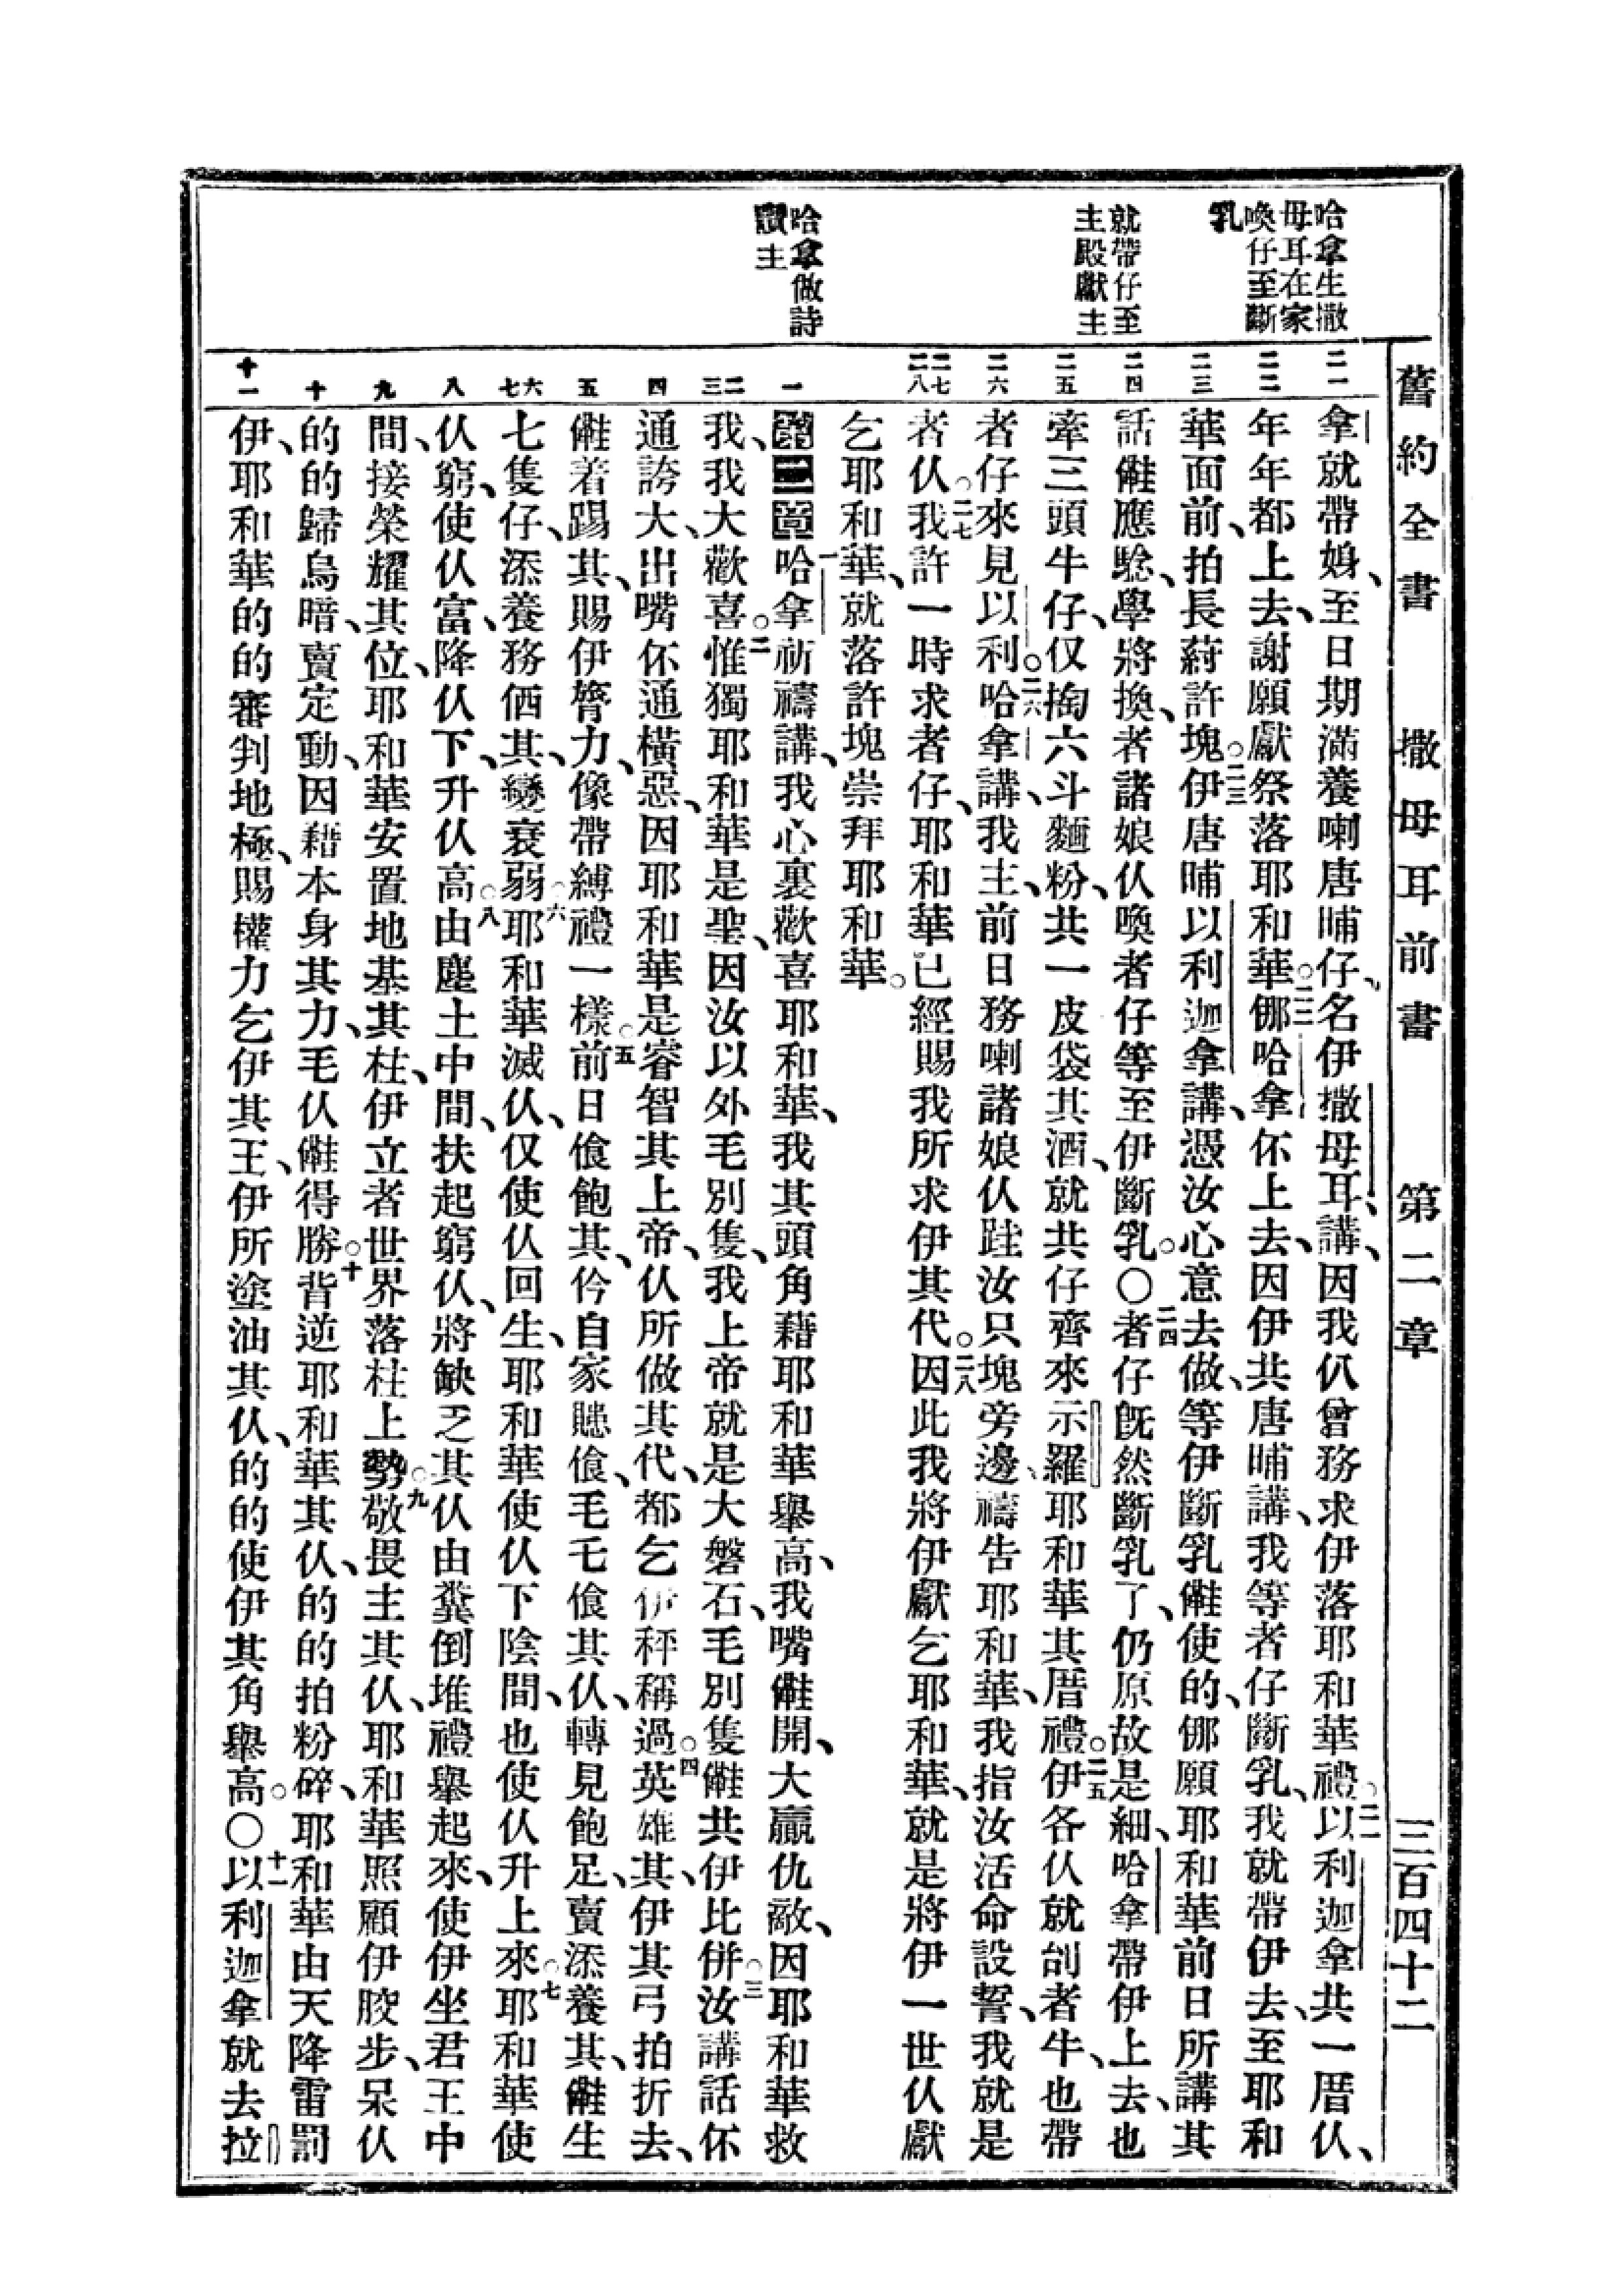 舊約全書　撒母耳前書　第二章　三百四十二
哈拿生撒
母耳在家
喚仔至斷
乳
就帶仔至
主殿獻主
哈拿做詩
讚主
二一
二二
二三
二四
二五
二六
二七
二八
一
二
三
四
五
六
七
八
九
十
十一
拿就帶娠、至日期滿養喇唐晡仔、名伊撒母耳、講、因我仈曾務求伊落耶和華禮。二一以利迦拿共一厝仈、
年年都上去、謝願獻祭落耶和華。二二㑚哈拿伓上去、因伊共唐晡講、我等者仔斷乳、我就帶伊去、至耶和
華面前、拍長蒔許塊。二三伊唐晡以利迦拿講、憑汝心意去做、等伊斷乳㒕使的、㑚願耶和華前日所講其
話㒕應驗、學將換、者諸娘仈喚者仔等至伊斷乳。〇二四者仔旣然斷乳了、仍原故是細、哈拿帶伊上去、也
牽三頭牛仔、仅掏六斗麵粉、共一皮袋其酒、就共仔齊來示羅耶和華其厝禮。二五伊各仈就刣者牛、也帶
者仔來見以利。二六哈拿講、我主、前日務喇諸娘仈跬汝只塊旁邊、禱告耶和華、我指汝活命設誓、我就是
者仈。二七我許一時求者仔、耶和華已經賜我所求伊其代。二八因此我將伊獻乞耶和華、就是將伊一世仈獻
乞耶和華、就落許塊崇拜耶和華。
第二章一哈拿祈禱講、我心裏歡喜耶和華、我其頭角藉耶和華舉高、我嘴㒕開、大贏仇敵、因耶和華救
我、我大歡喜。二惟獨耶和華是聖、因汝以外毛別隻、我上帝就是大磐石、毛別隻㒕共伊比併。三汝講話伓
通誇大、出嘴伓通橫惡、因耶和華是睿智其上帝、仈所做其代、都乞伊秤稱過。四英雄其、伊其弓拍折去、
㒕着踢其、賜伊膂力、像帶縛禮一樣。五前日飽其、仱自家、毛乇其仈、轉見飽足、賣添養其、㒕生
七隻仔、添養務㑻其、變衰弱。六耶和華滅仈、仅使仈回生、耶和華使仈下陰間、也使仈升上來。七耶和華使
仈窮、使仈富、降仈下、升仈高。八由塵土中間、扶起窮仈、將缺乏其仈由糞倒堆禮舉起來、使伊坐君王中
間、接榮耀其位、耶和華安置地基其柱、伊立者世界落柱上勢。九敬畏主其仈、耶和華照顧伊骹步、呆仈
的的歸烏暗、賣定動、因藉本身其力、毛仈㒕得勝。十背逆耶和華其仈、的的拍粉碎、耶和華由天降雷罰
伊、耶和華的的審判地極、賜權力乞伊其王、伊所塗油其仈、的的使伊其角舉高。〇十一以利迦拿就去拉